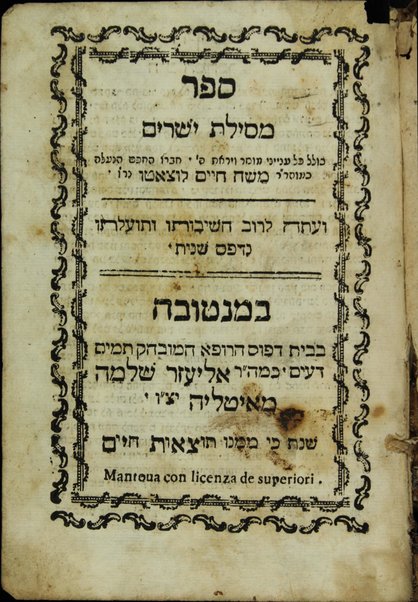 ספר
מסילת ישרים
כולל כל ענייני מוסר ויראת ה' ׳ חברו החכם הנעלה
כמוהר״ר משה חיים לוצאטו נר״ו ׳
ועתה לרוב חשיבותו ותועלתו
נדפס שנית ׳
במנטובה
בבית דפוס הרופא המובהק תמים
דעים ׳ כמה״ר אליעזר שלמה
מאיטליה יצ״ו ׳
שנת כי ממנו תוצאות חיים
Mantoua con licenza de superiori .